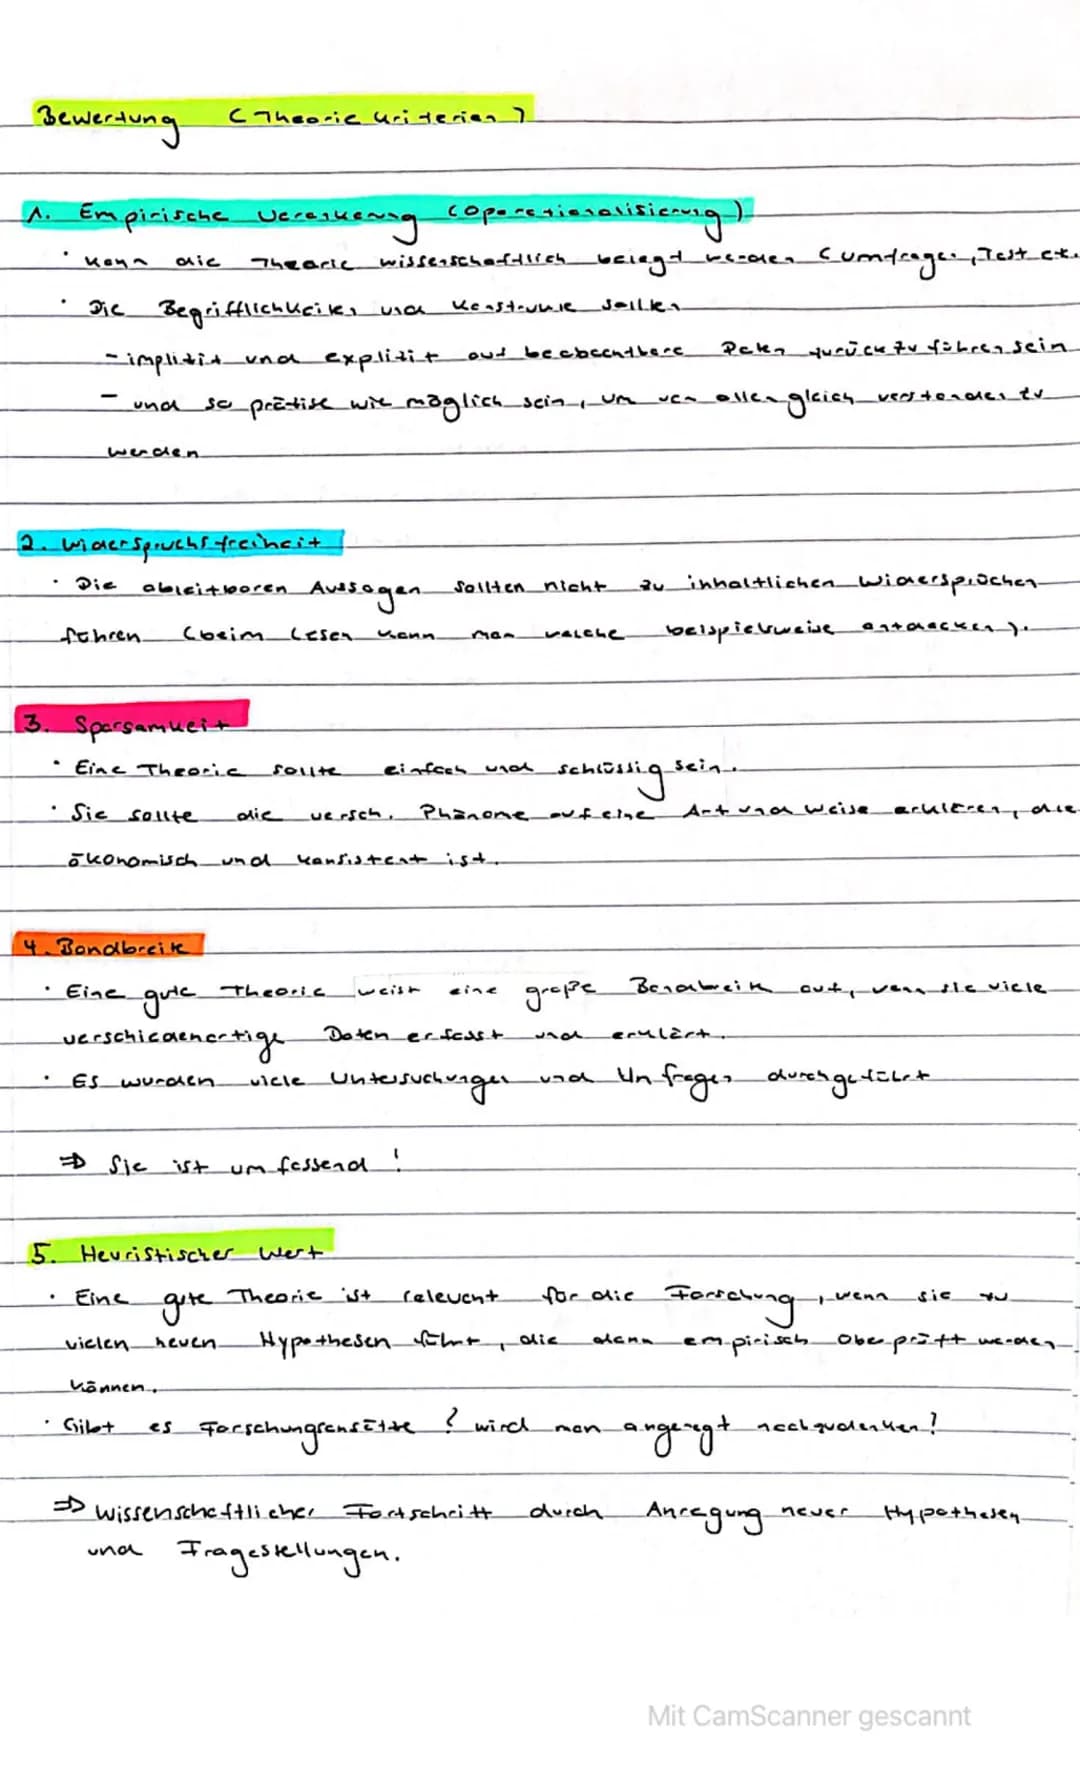 Bewertung (Theorie Kriterien)
1. Empirische Verankerung (Operationalisierung)
• Kann die Theorie wissenschaftlich belegt werden (Umfragen, Test etc.
• Die Begrifflichkeiten und Konstrukte sollten
- implizit und explizit auf beobachtbare Daten zurück zu führen sein
- und so präzise wie möglich sein, um von allen gleich verstanden zu
werden
2. Widerspruchsfreiheit
• Die ableitbaren Aussagen sollten nicht zu inhaltlichen Widersprüchen
führen (beim Lesen kann man welche beispielsweise entdecken).
3. Sparsamkeit
• Eine Theorie sollte einfach und schlüssig sein.
• Sie sollte die versch. Phänome auf eine Art und Weise erklären, die
ökonomisch und konsistent ist.
4. Bandbreite
• Eine gute Theorie weist eine große Bandbreite auf, wenn sie viele
verschiedenartige Daten erfasst und erklärt.
• Es wurden viele Untersuchungen und Umfragen durchgeführt
⇒ Sie ist umfassend!
5. Heuristischer Wert
• Eine gute Theorie ist relevant für die Forschung, wenn sie zu
vielen neuen Hypothesen führt, die dann empirisch überprüft werden
können.
• Gibt es Forschungsansätze? wird man angeregt nachzudenken?
⇒ Wissenschaftlicher Fortschritt durch Anregung neuer Hypothesen
und Fragestellungen.
Mit CamScanner gescannt